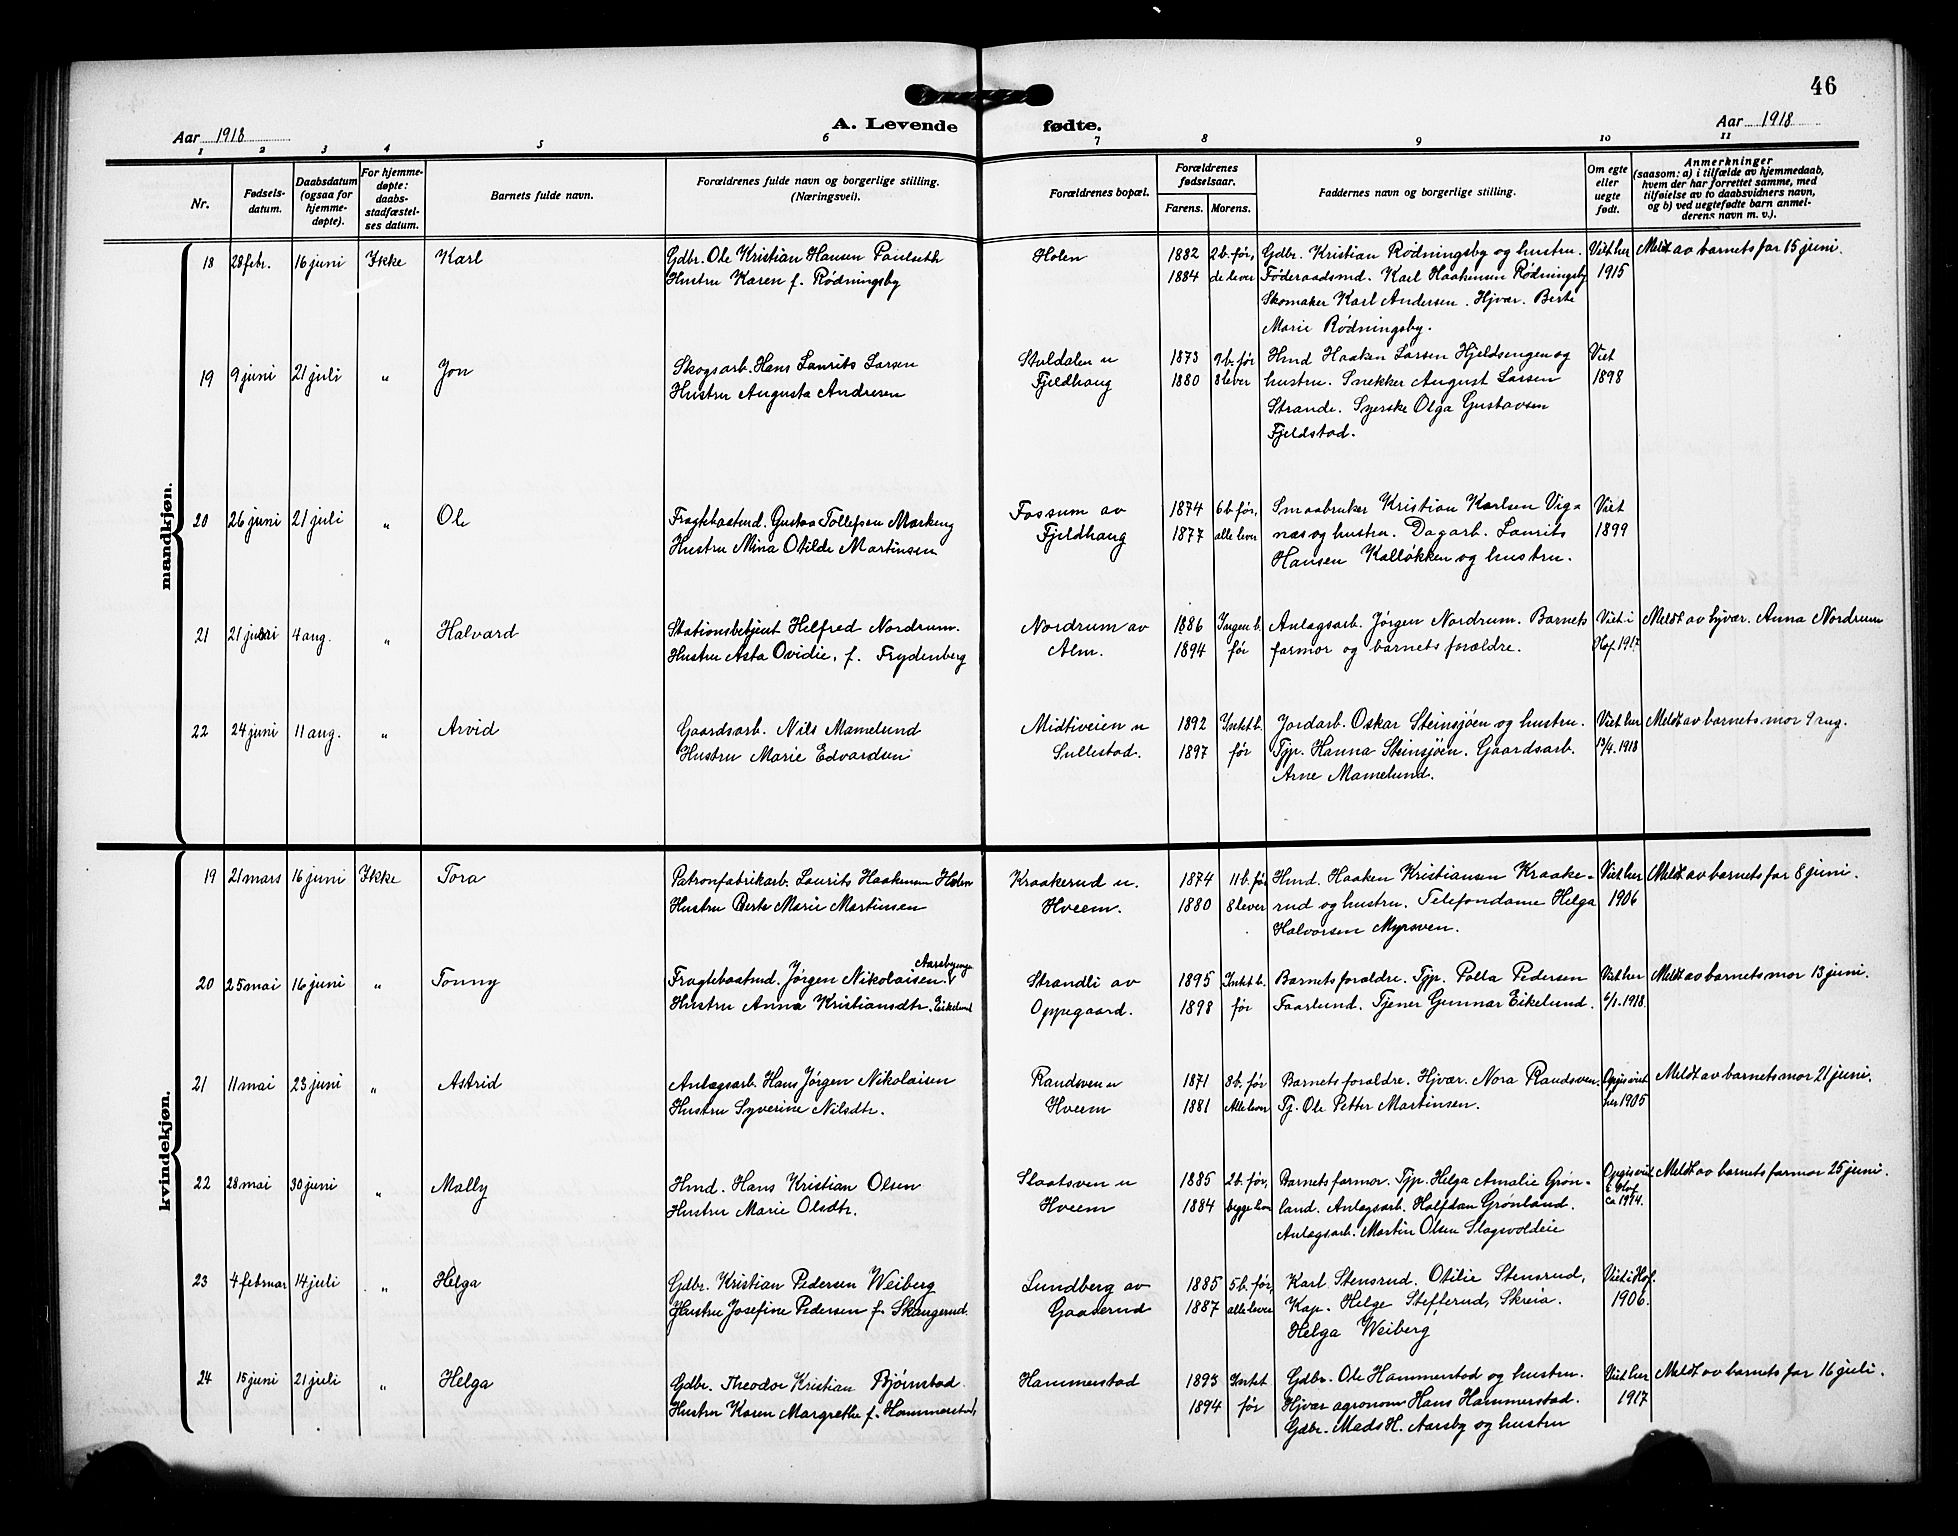 46
Aar 1918
A. Levende fødte.
Aar 1918
1 2 3 4 5 6 7 8 9 10 11
Nr.
Fødsels-
datum.
Daabsdatum
(ogsaa for
hjemme-
døpte).
For hjemme-
døpte:
daabs-
stadfæstel-
ses datum.
Barnets fulde navn.
Forældrenes fulde navn og borgerlige stilling.
(Næringsvei).
Forældrenes bopæl.
Forældrenes
fødselsaar.
Farens. Morens.
Faddernes navn og borgerlige stilling.
Om egte
eller
uegte
født.
Anmerkninger
(saasom: a) i tilfælde av hjemmedaab,
hvem der har forrettet samme, med
tilføielse av to daabsvidners navn,
og b) ved uegtefødte barn anmel-
derens navn m. v.).
mandkjøn.
18 28 febr. 16 juni Ikke Karl Gdbr. Ole Kristian Hansen Paulseth Holen 1882 2 b. før, Gdbr. Kristian Rødningsby og hustru. Viet her Meldt av barnets far 15 juni.
Hustru Karen f. Rødningsby 1884 de lever Føderaadsmd. Karl Haakensen Rødningsby 1915
Skomaker Karl Andersen. Hjvær. Berte
Marie Rødningsby.
19 9 juni 21 juli " Jon Skogsarb. Hans Laurits Larsen Stuldalen u 1873 9 b. før Hmd Haaken Larsen Hjeldsengen og Viet
Hustru Augusta Andresen Fjeldhaug 1880 8 lever hustru. Snekker August Larsen 1898
Strande. Syerske Olga Gustavsen
Fjeldstad.
20 26 juni 21 juli " Ole Fragtebaatmd. Gustav Tollefsen Markeng Fossum av 1874 6 b. før, Smaabruker Kristian Karlsen Vig- Viet
Hustru Mina Otilde Martinsen Fjeldhaug 1877 alle lever næs og hustru. Dagarb. Laurits 1899
Hansen Kalløkken og hustru.
21 21 juni 4 aug. " Halvard Stationsbetjent Helfred Nordrum. Nordrum av 1886 Ingen b. Anlagsarb. Jørgen Nordrum. Barnets Viet i Meldt av hjvær. Anna Nordrum
Hustru Asta Ovidie, f. Frydenberg Alm. 1894 før farmor og barnets forældre. Hof 1917
22 24 juni 11 aug. " Arvid Gaardsarb. Nils Mamelund Midtiveien u 1892 Intet b. Jordarb. Oskar Steinsjøen og hustru. Viet her Meldt av barnets mor 9 aug.
Hustru Marie Edvardsen Sullestad. 1897 før Tjp. Hanna Steinsjøen. Gaardsarb. 1918
Arne Mamelund.
kvindekjøn.
19 21 mars 16 juni Ikke Tora Patronfabrikarb. Laurits Haakensen Holen Kraakerud u. 1874 11 b. før Hmd. Haaken Kristiansen Kraake- Viet her Meldt av barnets far 8 juni.
Hustru Berte Marie Martinsen Hveem. 1880 8 lever rud og hustru. Telefondame Helga 1906
Halvorsen Myrsven.
20 25 mai 16 juni " Tonny Fragtebaatmd. Jørgen Nikolaisen Aarsbyenge Strandli av 1895 Intet b. Barnets forældre. Tjp. Palla Pedersen Viet her Meldt av barnets mor 13 juni.
Hustru Anna Kristiansdtr. Eikelund Oppegaard. 1898 før Faarlund. Tjener Gunnar Eikelund. 6/1.1918.
21 11 mai 23 juni " Astrid Anlægsarb. Hans Jørgen Nikolaisen Randsven u 1871 8 b. før Barnets forældre. Hjvær. Nora Randsven. Opgis viet Meldt av barnets mor 21 juni.
Hustru Syverine Nilsdtr. Hveem 1881 Alle lever Tj. Ole Petter Martinsen. her 1905
22 28 mai 30 juni " Mally Hmd. Hans Kristian Olsen Slaatsven u 1885 2 b. før, Barnets farmor. Tjp. Helga Amalie Grøn- Opgis viet Meldt av barnets farmor 25 juni.
Hustru Marie Olsdtr. Hveem 1884 begge lever land. Anlagsarb. Halfdan Grønland. i Hof
Anlægsarb. Martin Olsen Slagsvoldeie ca 1914.
23 4 februar 14 juli " Helga Gdbr. Kristian Pedersen Weiberg Lundberg av 1885 5 b. før, Karl Stensrud. Otilie Stensrud, Viet i Hof.
Hustru Josefine Pedersen f. Skaugerud. Gaaserud 1887 alle lever Kap. Helge Stefferud, Skreia. 1906.
Helga Weiberg
24 15 juni 21 juli " Helga Gdbr. Theodor Kristian Bjørnstad Hammerstad 1893 Intet Gdbr. Ole Hammerstad og hustru. Viet her Meldt av barnets far 16 juli.
Hustru Karen Margrethe f. Hammerstad, 1894 før Hjvær agronom Hans Hammerstad. 1917
Gdbr. Mads H. Aarsby og hustru